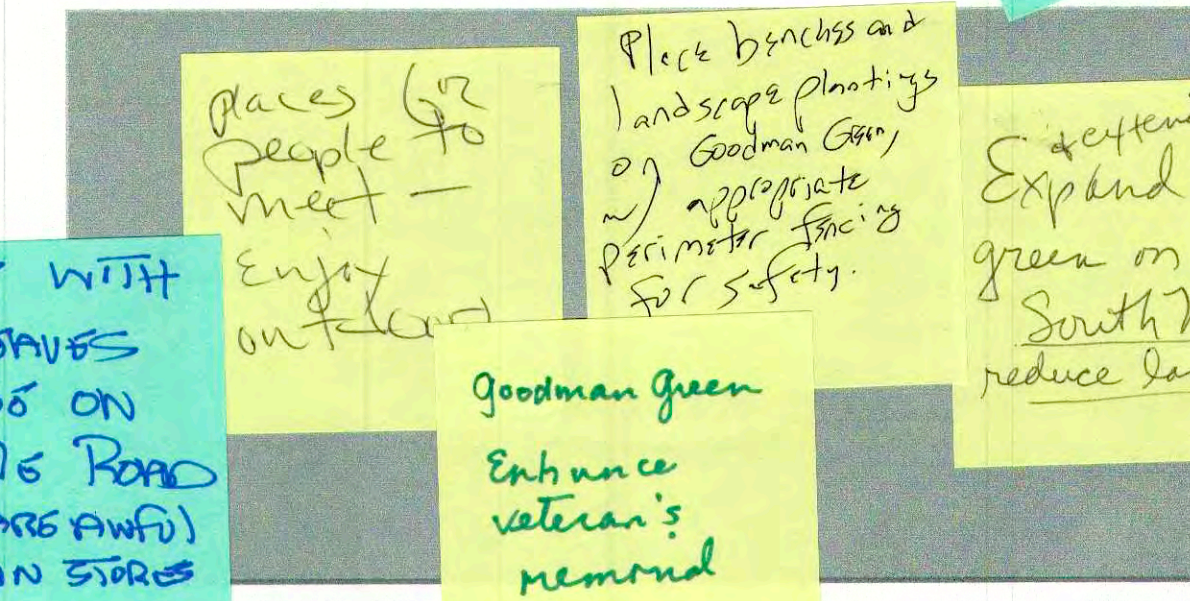 places for
people to
meet —
Enjoy
outdoors
Place benches and
landscape plantings
on Goodman Green,
w/ appropriate
perimeter fencing
for safety.
& exten
Expand
green on
South
reduce la
WITH
ON
ROAD
ARE AWFUL
IN STORES
Goodman Green
Enhance
veteran's
memorial